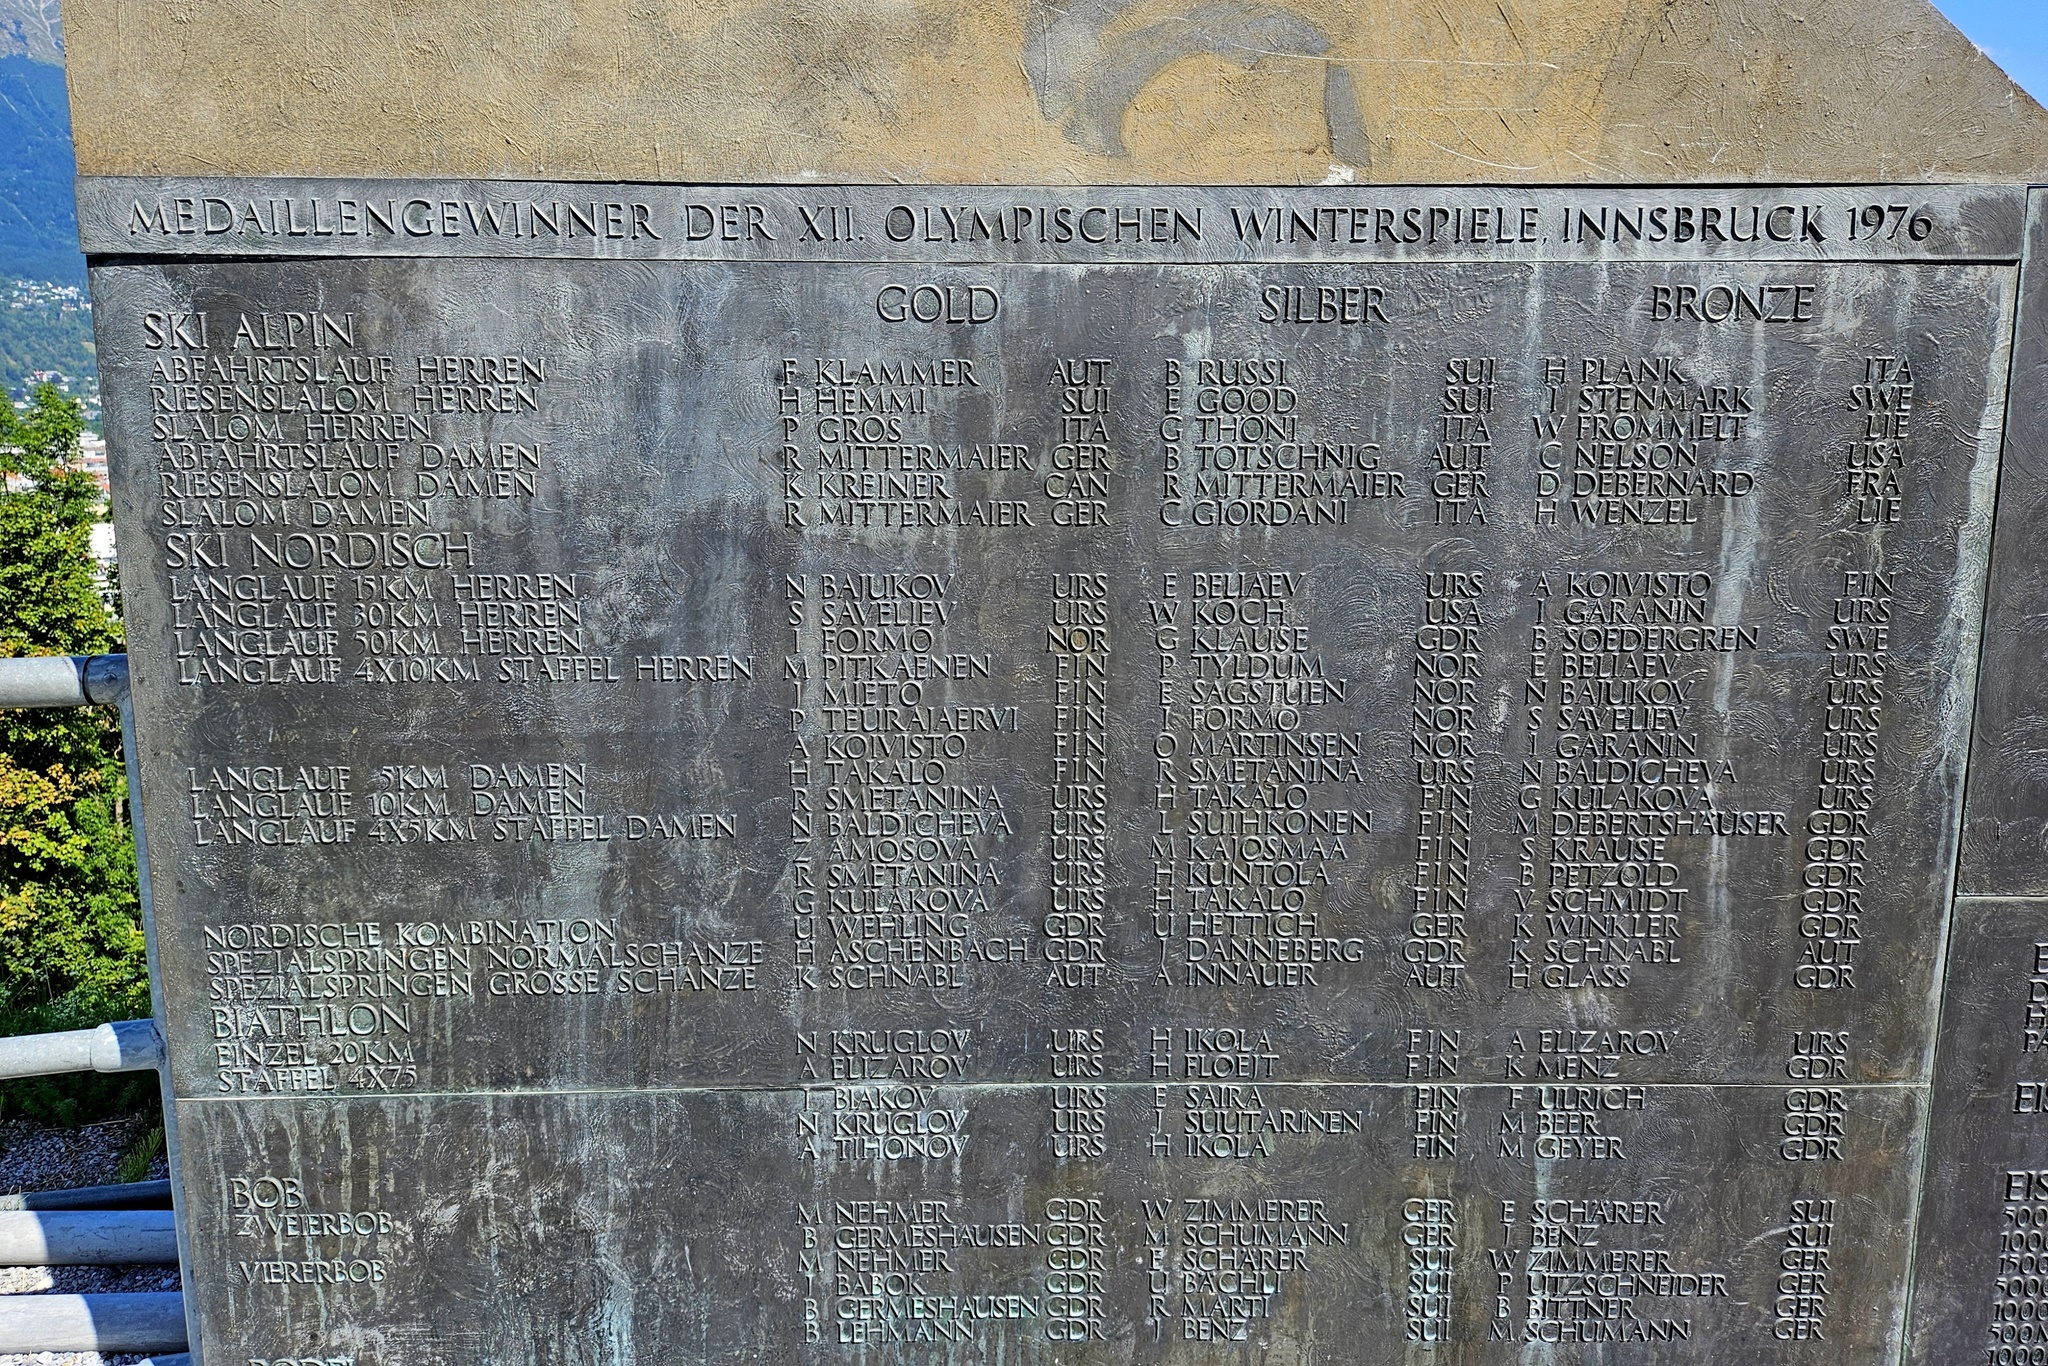 MEDAILLENGEWINNER DER XII. OLYMPISCHEN WINTERSPIELE, INNSBRUCK 1976
GOLD SILBER BRONZE
SKI ALPIN
ABFAHRTSLAUF HERREN F KLAMMER AUT B RUSSI SUI H PLANK ITA
RIESENSLALOM HERREN H HEMMI SUI E GOOD SUI I STENMARK SWE
SLALOM HERREN P GROS ITA G THÖNI ITA W FROMMELT LIE
ABFAHRTSLAUF DAMEN R MITTERMAIER GER B TOTSCHNIG AUT C NELSON USA
RIESENSLALOM DAMEN K KREINER CAN R MITTERMAIER GER D DEBERNARD FRA
SLALOM DAMEN R MITTERMAIER GER C GIORDANI ITA H WENZEL LIE
SKI NORDISCH
LANGLAUF 15KM HERREN N BAJUKOV URS E BELIAEV URS A KOIVISTO FIN
LANGLAUF 30KM HERREN S SAVELIEV URS W KOCH USA I GARANIN URS
LANGLAUF 50KM HERREN I FORMO NOR G KLAUSE GDR B SOEDERGREN SWE
LANGLAUF 4X10KM STAFFEL HERREN M PITKAENEN FIN P TYLDUM NOR E BELIAEV URS
J MIETO FIN E SAGSTUEN NOR N BAJUKOV URS
P TEURAJAERVI FIN I FORMO NOR S SAVELIEV URS
A KOIVISTO FIN O MARTINSEN NOR I GARANIN URS
LANGLAUF 5KM DAMEN H TAKALO FIN R SMETANINA URS N BALDICHEVA URS
LANGLAUF 10KM DAMEN R SMETANINA URS H TAKALO FIN G KULAKOVA URS
LANGLAUF 4X5KM STAFFEL DAMEN N BALDICHEVA URS L SUIHKONEN FIN M DEBERTSHÄUSER GDR
Z AMOSOVA URS M KAJOSMAA FIN S KRAUSE GDR
R SMETANINA URS H KUNTOLA FIN B PETZOLD GDR
G KULAKOVA URS H TAKALO FIN V SCHMIDT GDR
NORDISCHE KOMBINATION U WEHLING GDR U HETTICH GER K WINKLER GDR
SPEZIALSPRINGEN NORMALSCHANZE H ASCHENBACH GDR J DANNEBERG GDR K SCHNABL AUT
SPEZIALSPRINGEN GROSSE SCHANZE K SCHNABL AUT A INNAUER AUT H GLASS GDR
BIATHLON
EINZEL 20KM N KRUGLOV URS H IKOLA FIN A ELIZAROV URS
STAFFEL 4X75 A ELIZAROV URS H FLOEJT FIN K MENZ GDR
I BIAKOV URS E SAIRA FIN F ULRICH GDR
N KRUGLOV URS J SUUTARINEN FIN M BEER GDR
A TIHONOV URS H IKOLA FIN M GEYER GDR
BOB
ZWEIERBOB M NEHMER GDR W ZIMMERER GER E SCHÄRER SUI
B GERMESHAUSEN GDR M SCHUMANN GER J BENZ SUI
VIERERBOB M NEHMER GDR E SCHÄRER SUI W ZIMMERER GER
J BABOK GDR U BÄCHLI SUI P UTZSCHNEIDER GER
B GERMESHAUSEN GDR R MARTI SUI B BITTNER GER
B LEHMANN GDR J BENZ SUI M SCHUMANN GER